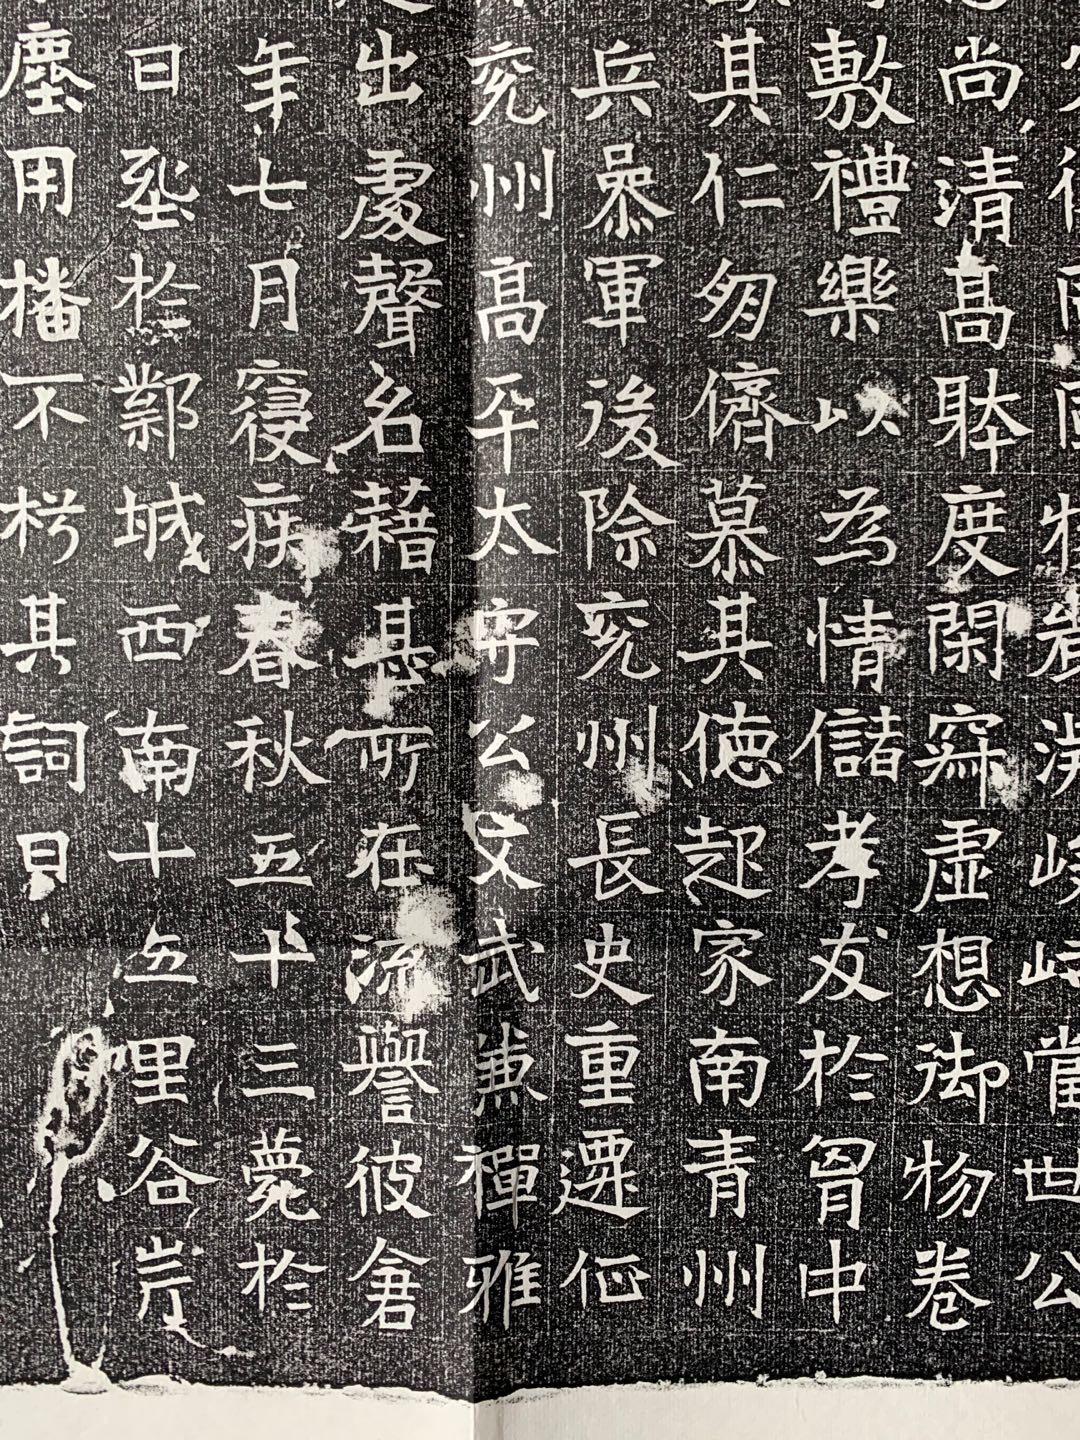 當世公
尚清高㲝度閑寂虛想御物卷
敷禮樂以為情儲孝友於胷中
其仁芻儕慕其德起家南青州
兵㬥軍後除兖州長史重遷征
兖州高平太守公文武兼禪雅
出處聲名藉甚所在流譽彼倉
年七月寑疾春秋五十三薨於
日窆於鄴城西南十五里谷岸
塵用播不朽其詞曰